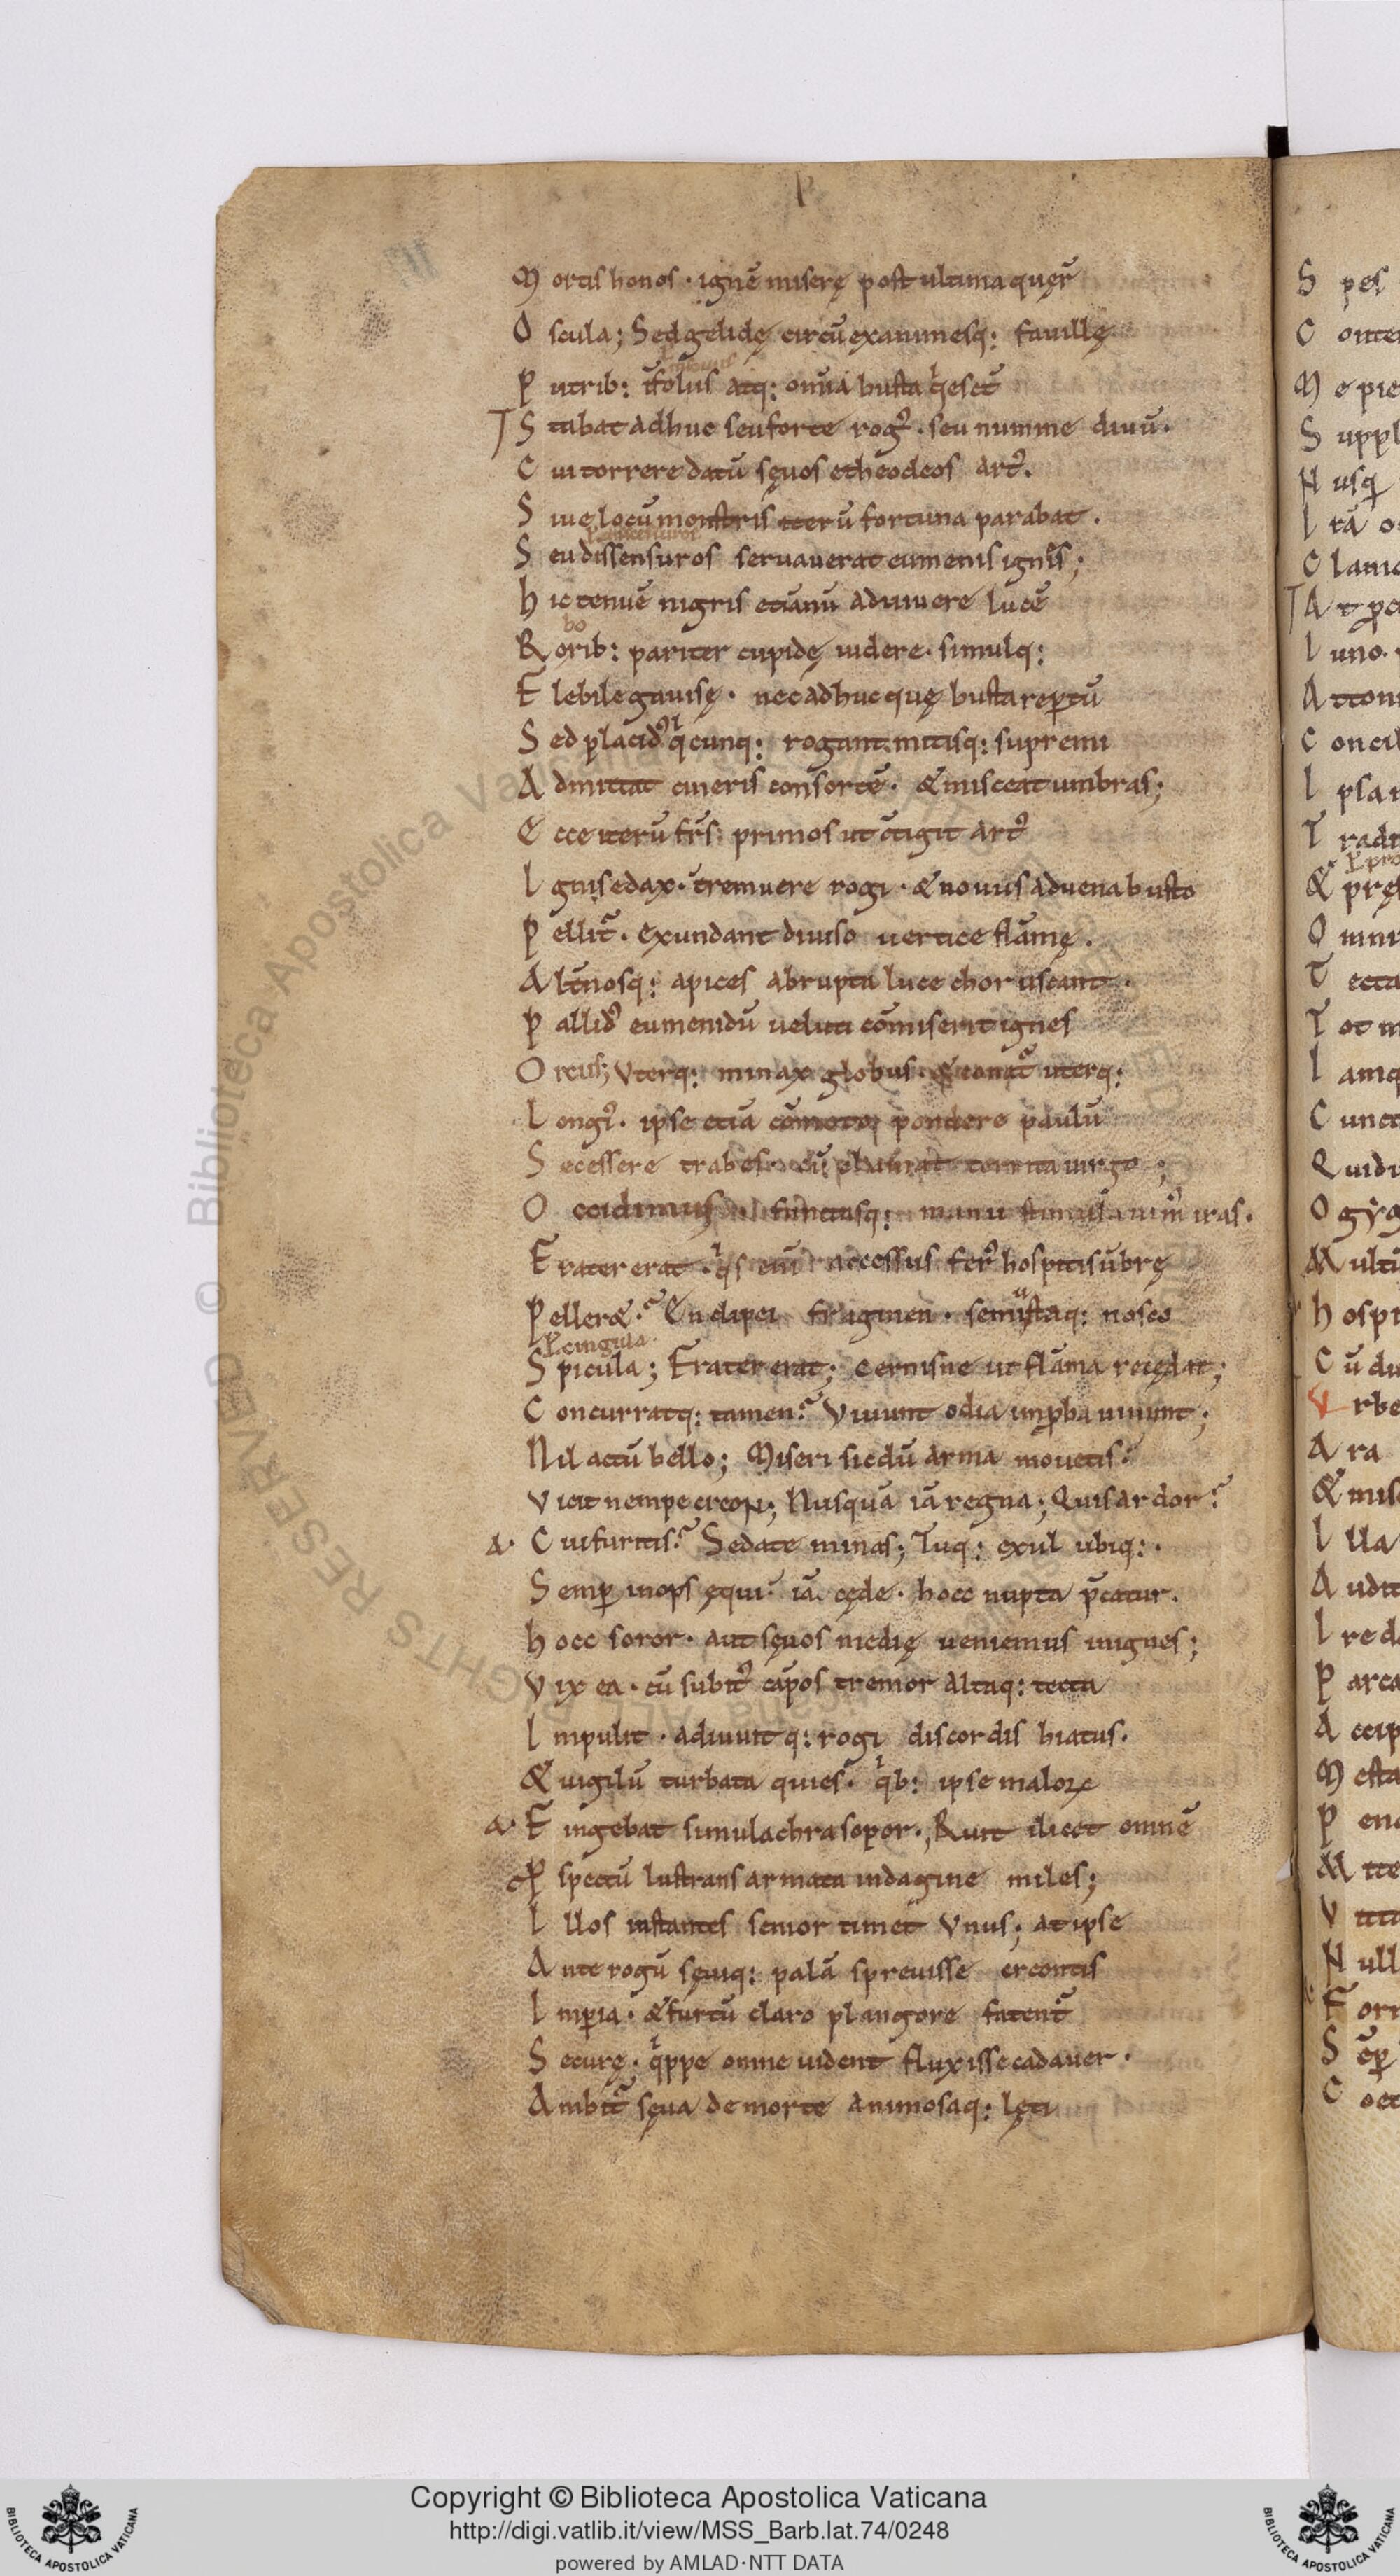 Mortis honos · ignē miserę post ultima quęr̄
Oscula; Sed gelidę circū exanimesq: fauillę
Putrib: atq: om̄ia busta
Stabat adhuc seu forte rog᾿ · seu numine diuū ·
Cui torrere datū sęuos etheocleos art᾿.
Siue locū monstris iterū fortuna parabat .
Seu dissensuros seruauerat eumenis ignis;
Hic tenuē nigris etiānū adiuuere lucē
bo
Rorib: pariter cupidę uidere · simulq:
Flebile gauisę · nec adhuc quę busta reꝑtū
Sed placid᾿ qͥcunq: rogant mitisq: supremi
Admittat cineris consortē · & misceat umbras;
Ecce iterū fr̄s: primos ut c̄tigit art᾿
Ignis edax · tremuere rogi · & nouus aduena busto
Pellit᷑ · exundant diuiso uertice flāmę .
Alt̄nosq: apices abrupta luce choruscant ·
Pallid᾿ eumenidū ueluti cōmiserit ignes
Orcus; Vterq: minax globus · uterq:
Longi᾿ · ipse etiā cōmoto pondere paulū
Secessere trabes · cū territa uirgo ;
Occidimus · functasq: manu iras ·
Frater erat · qͥs eni᷑ accessus fer᾿ hospitis ūbrę
Peller&? En clipei fragmen · semiustaq: nosco
cingula
Spicula; Frater erat; Cernisne ut flāma recędat;
Concurratq: tamen? Viuunt odia inꝓba uiuunt;
Nil actū bello; Miseri sic dū arma mouetis ·
Vicit nempe creon; Nusquā iā regna; Quis ardor?
A · Cui furitis? Sedate minas; Tuq: exul ubiq: ·
Semꝑ inops ęqui · iā cęde · hocc nupta p̄catur .
Hocc soror · aut sęuos medię ueniemus inignes;
Vix ea · cū subit᾿ cāpos tremor altaq: tecta
Impulit · adiuuitq: rogi discordis hiatus ·
& uigilū turbata quies · qͥb: ipse maloꝝ
A · Fingebat simulachra sopor · ; Ruit ilicet omnē
ꝓspectū lustrans armata indagine miles;
Illos instantes senior timet Vnus; at ipse
Ante rogū sęuiq: palā spreuisse creontis
Imꝑia · & furtū claro plangore fatent᷑
Securę · qͥppe omne uident fluxisse cadauer ·
Ambit᷑ sęua de morte animosaq: lęti
Copyright © Biblioteca Apostolica Vaticana
http://digi.vatlib.it/view/MSS_Barb.lat.74/0248
powered by AMLAD·NTT DATA